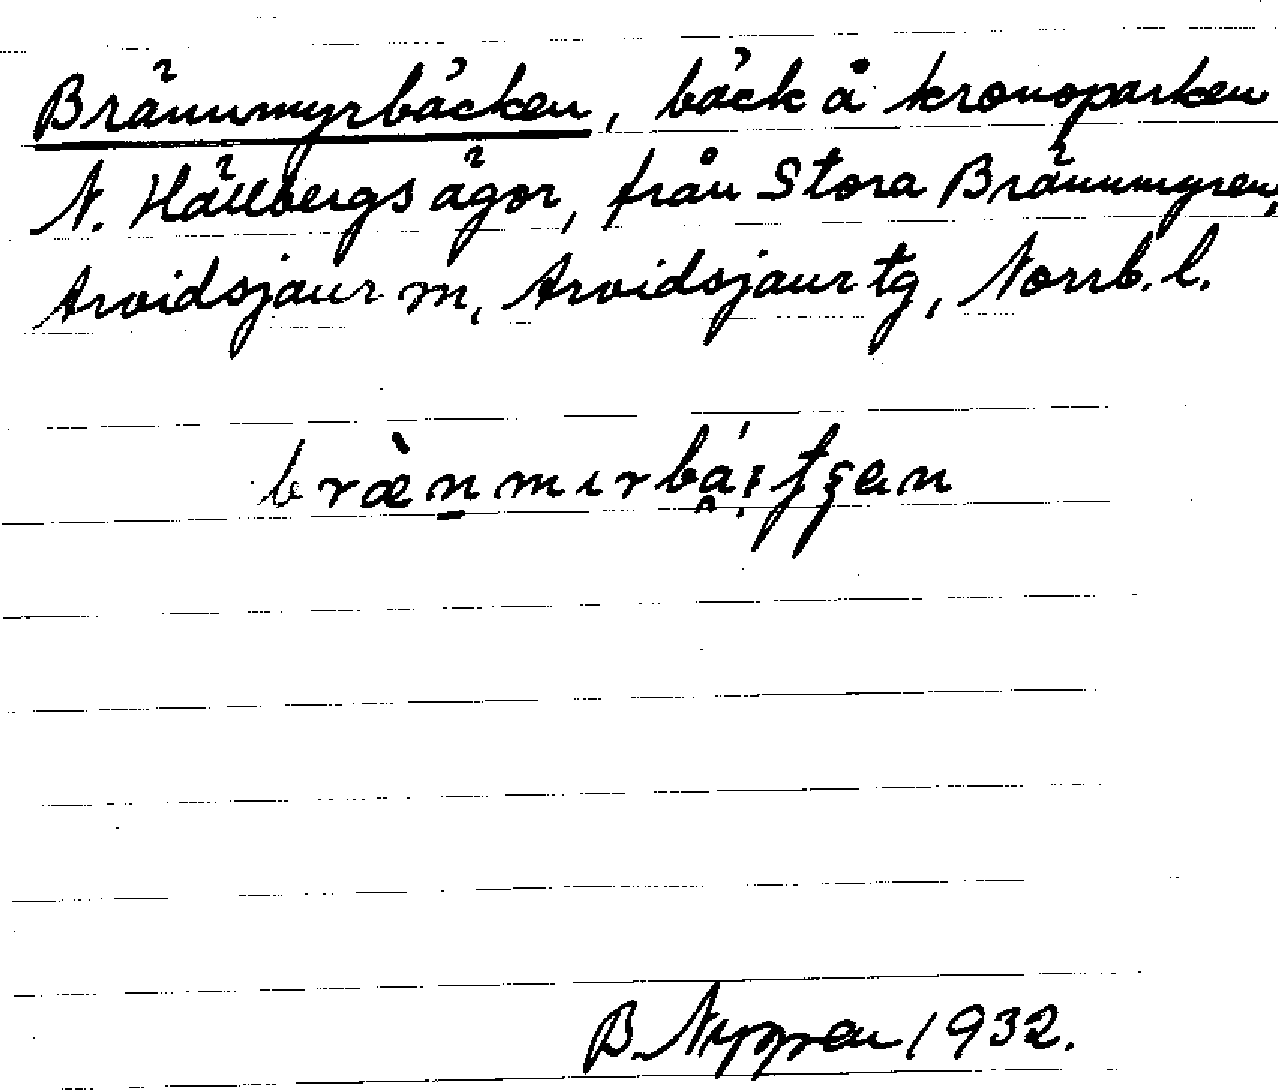 Brännmyrbäcken, bäck å kronoparken
N. Hällbergs ägor, från Stora Brännmyren,
Arvidsjaur sn, Arvidsjaur tg, Norrb. l.
bræn̲mırbą́ıtʃʂen
B. Nygren 1932.